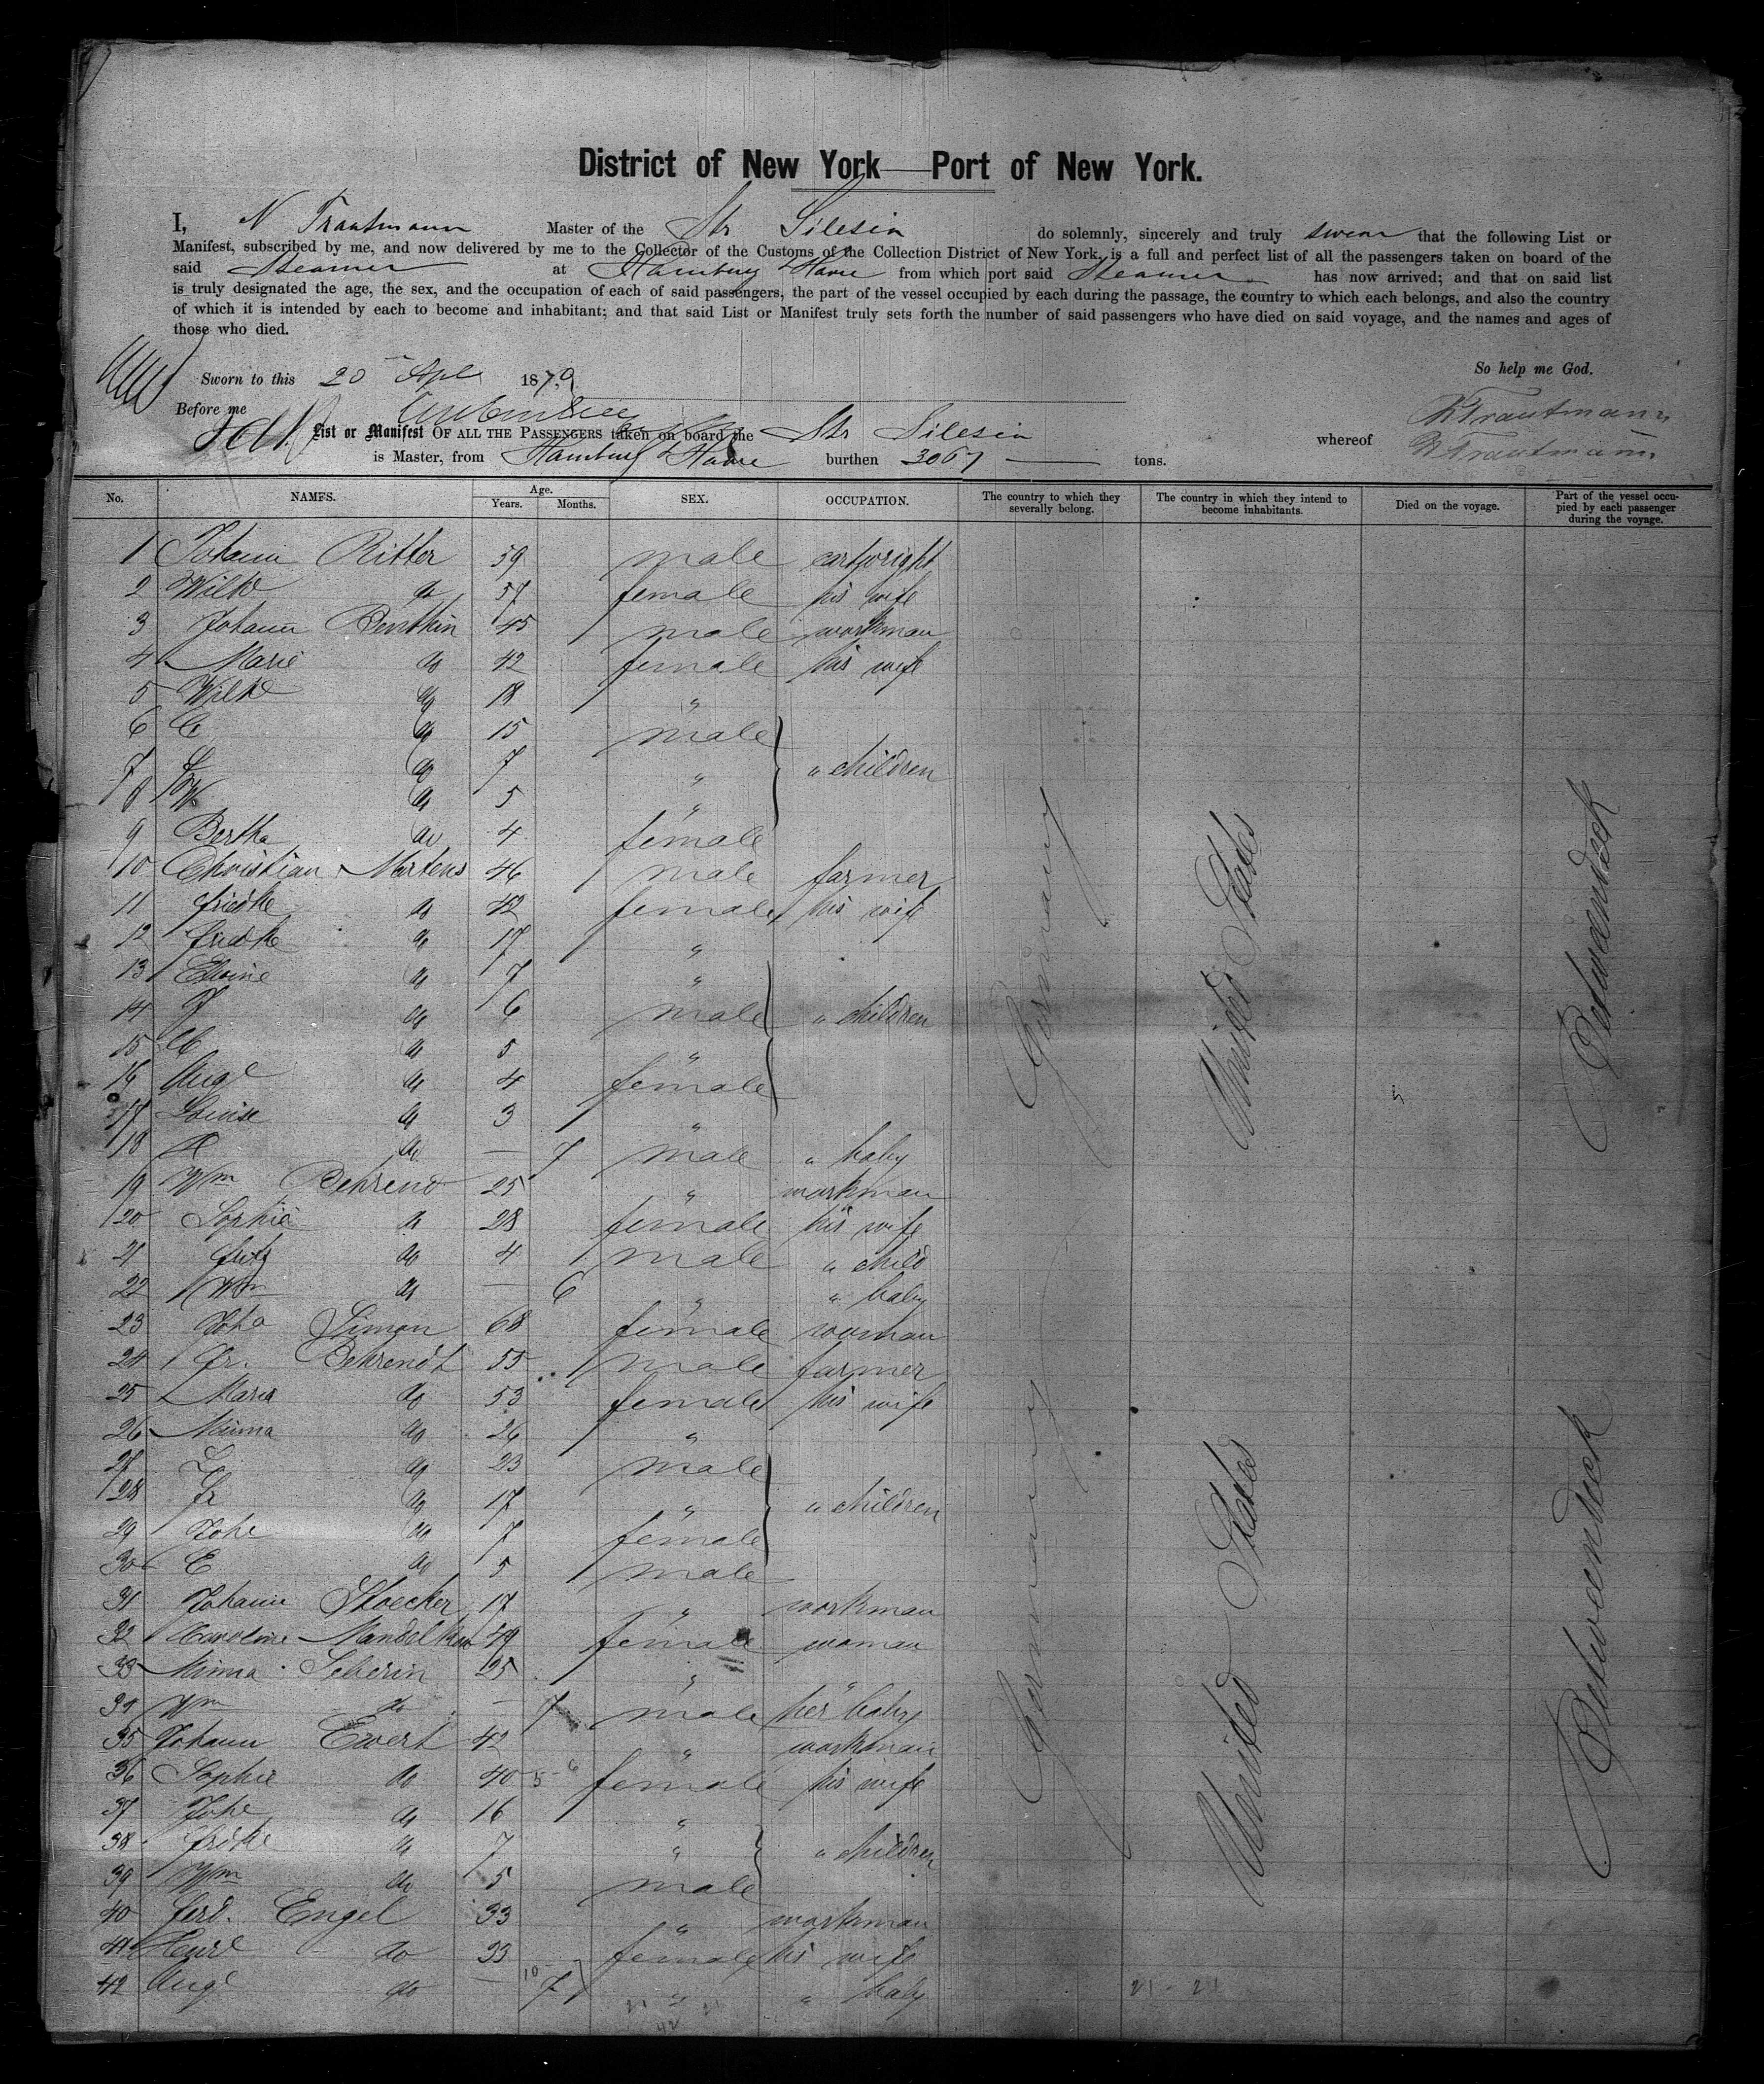 District of New York — Port of New York.
I, N Trautmann Master of the Str Silesia do solemnly, sincerely and truly swear that the following List or
Manifest, subscribed by me, and now delivered by me to the Collector of the Customs of the Collection District of New York, is a full and perfect list of all the passengers taken on board of the
said Steamer at Hamburg & Havre from which port said Steamer has now arrived; and that on said list
is truly designated the age, the sex, and the occupation of each of said passengers, the part of the vessel occupied by each during the passage, the country to which each belongs, and also the country
of which it is intended by each to become and inhabitant; and that said List or Manifest truly sets forth the number of said passengers who have died on said voyage, and the names and ages of
those who died.
So help me God.
Sworn to this 20 Apl 1879
Before me
N Trautmann
List or Manifest OF ALL THE PASSENGERS taken on board the Str Silesia whereof N Trautmann
is Master, from Hamburg & Havre burthen 3067 tons.
No. NAMES. Age. Years. Months. SEX. OCCUPATION. The country to which they severally belong. The country in which they intend to become inhabitants. Died on the voyage. Part of the vessel occupied by each passenger during the voyage.
1 Johann Ritter 59 male cartwright
2 Wilhe do 57 female his wife
3 Johann Benthin 45 male workman
4 Marie do 42 female his wife
5 Wilhe do 18 "
6 C do 15 male
7 do 7 " " children
8 W do 5 "
9 Bertha do 4 female
10 Christian Mertens 46 male farmer
11 friedke do 42 female his wife
12 friedke do 17 "
13 Elwine do 7 "
14 do 6 male " children
15 C do 5 "
16 Auge do 4 female
17 Louise do 3 "
18 do — 7 male " baby
19 Wm Behrend 25 " workman
20 Sophie do 28 female his wife
21 fritz do 4 male " child
22 Wm do — 6 " " baby
23 Joha Simon 68 female woman
24 Fr. Behrendt 55 male farmer
25 Maria do 53 female his wife
26 Minna do 26 "
27 do 23 male
28 Fr do 17 " " children
29 Johe do 7 female
30 E do 5 male
31 Johann Stoecker 17 " workman
32 Caroline 49 female woman
33 Minna Scherin 25 "
34 Wm do — 7 male her baby
35 Johann Ewert 42 " workman
36 Sophie do 40 female his wife
37 Johe do 16 "
38 fridke do 7 " " children
39 Wm do 5 male
40 ferd. Engel 33 " workman
41 Henre do 33 female his wife
42 Auge do — 7 " " baby
Germany United States Betweendeck
Germany United States Betweendeck
21 - 21